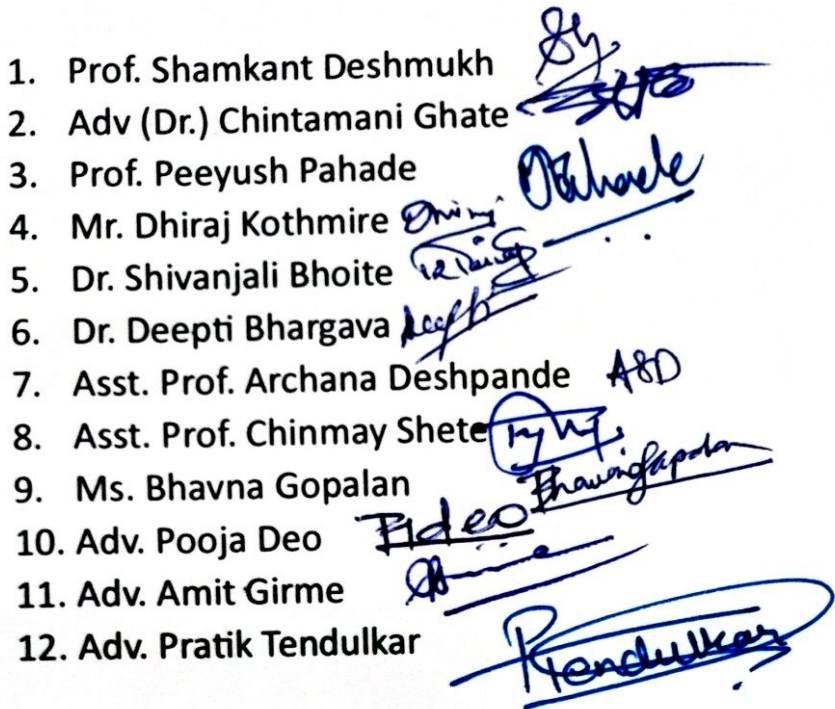 1. Prof. Shamkant Deshmukh
2. Adv (Dr.) Chintamani Ghate
3. Prof. Peeyush Pahade Pahade
4. Mr. Dhiraj Kothmire Dhiraj
5. Dr. Shivanjali Bhoite
6. Dr. Deepti Bhargava
7. Asst. Prof. Archana Deshpande ASD
8. Asst. Prof. Chinmay Shete
9. Ms. Bhavna Gopalan Bhavnagapalan
10. Adv. Pooja Deo Pdeo
11. Adv. Amit Girme
12. Adv. Pratik Tendulkar PTendulkar